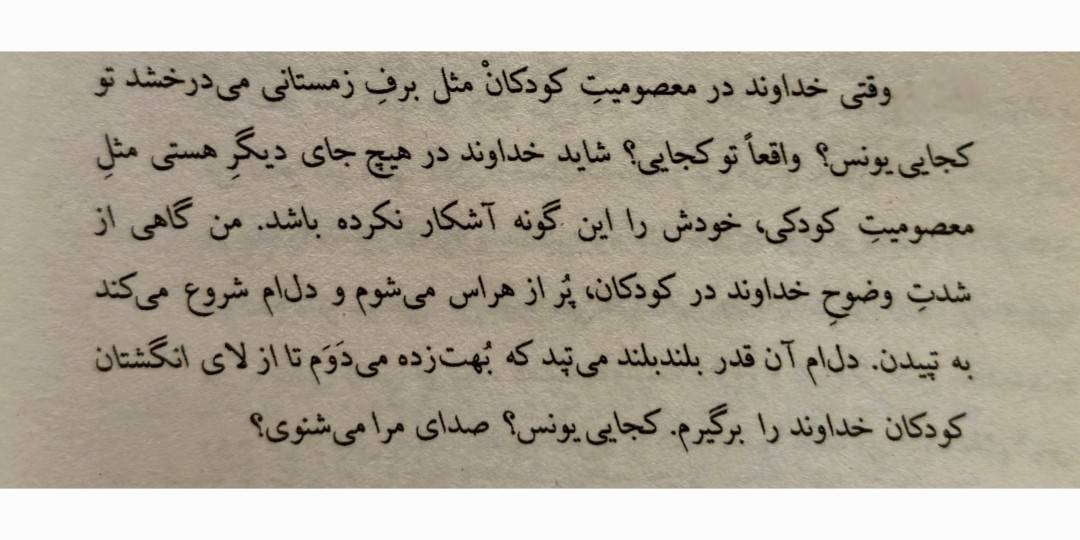 وقتی خداوند در معصومیتِ کودکانْ مثل برفِ زمستانی می‌درخشد تو
کجایی یونس؟ واقعاً تو کجایی؟ شاید خداوند در هیچ جای دیگرِ هستی مثلِ
معصومیتِ کودکی، خودش را این گونه آشکار نکرده باشد. من گاهی از
شدتِ وضوحِ خداوند در کودکان، پُر از هراس می‌شوم و دل‌ام شروع می‌کند
به تپیدن. دل‌ام آن قدر بلندبلند می‌تپد که بُهت‌زده می‌دَوَم تا از لای انگشتان
کودکان خداوند را برگیرم. کجایی یونس؟ صدای مرا می‌شنوی؟